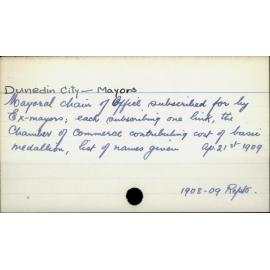 Dunedin City — Mayors
Mayoral chain of Office subscribed for by
Ex-mayors; each subscribing one link, the
Chamber of Commerce contributing cost of basic
medallion, list of names given Ap. 21st 1909
1908-09 Repts.